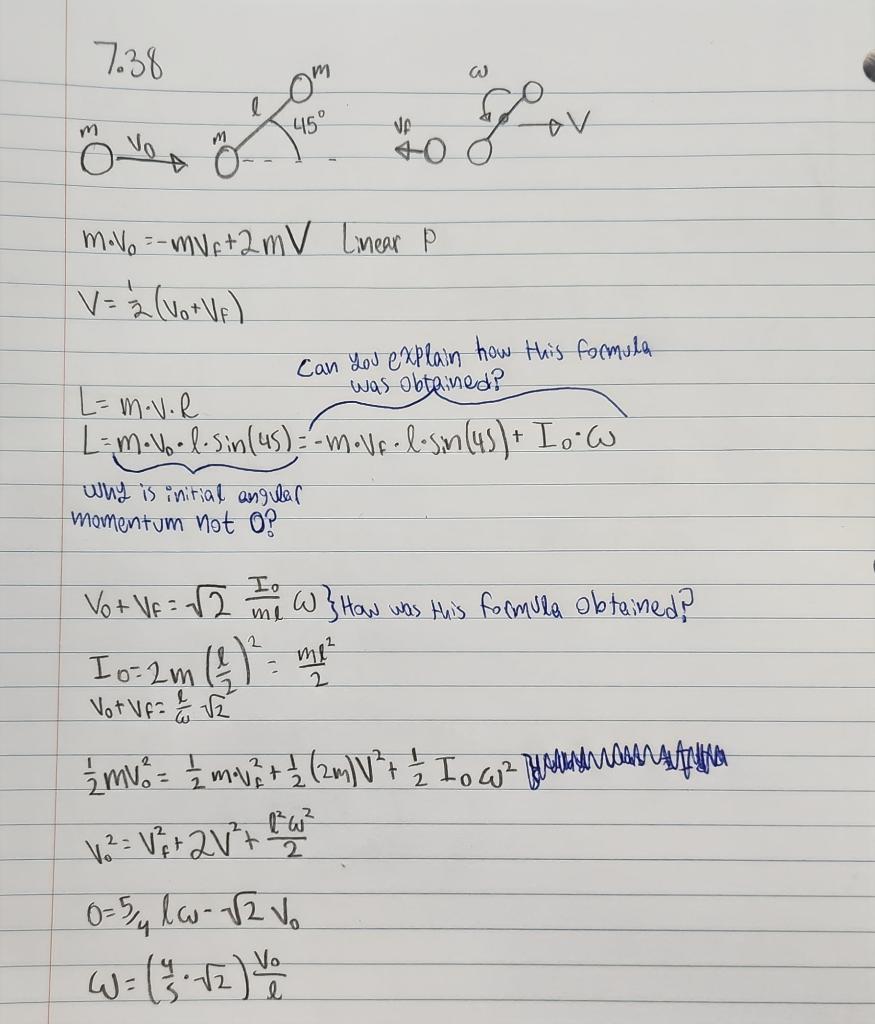 7.38
m V₀ m l m 45° Vf ω V
m·V₀ = -mVf + 2mV Linear P
V = ½(V₀ + Vf)
Can you explain how this formula
was obtained?
L = m·V·l
L = m·V₀·l·sin(45) = -m·Vf·l·sin(45) + I₀·ω
Why is initial angular
momentum not 0?
V₀ + Vf = √2 I₀/ml ω } How was this formula obtained?
I₀ = 2m(l/2)² = ml²/2
V₀ + Vf = l/ω √2
½mV₀² = ½m·Vf² + ½(2m)V² + ½ I₀ω²
V₀² = Vf² + 2V² + l²ω²/2
0 = 5/4 lω - √2 V₀
ω = (4/5·√2) V₀/l